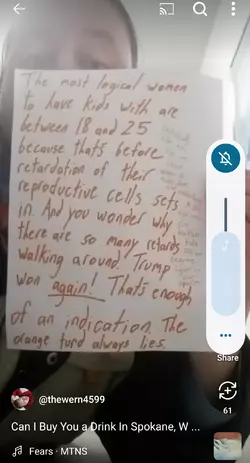 The most logical women
to have kids with are
between 18 and 25
because thats before
retardation of their
reproductive cells sets
in. And you wonder why
there are so many retards
walking around! Trump
won again! Thats enough
of an indication. The
orange turd always lies.
Share
@thewern4599
61
Can I Buy You a Drink In Spokane, W...
Fears · MTNS